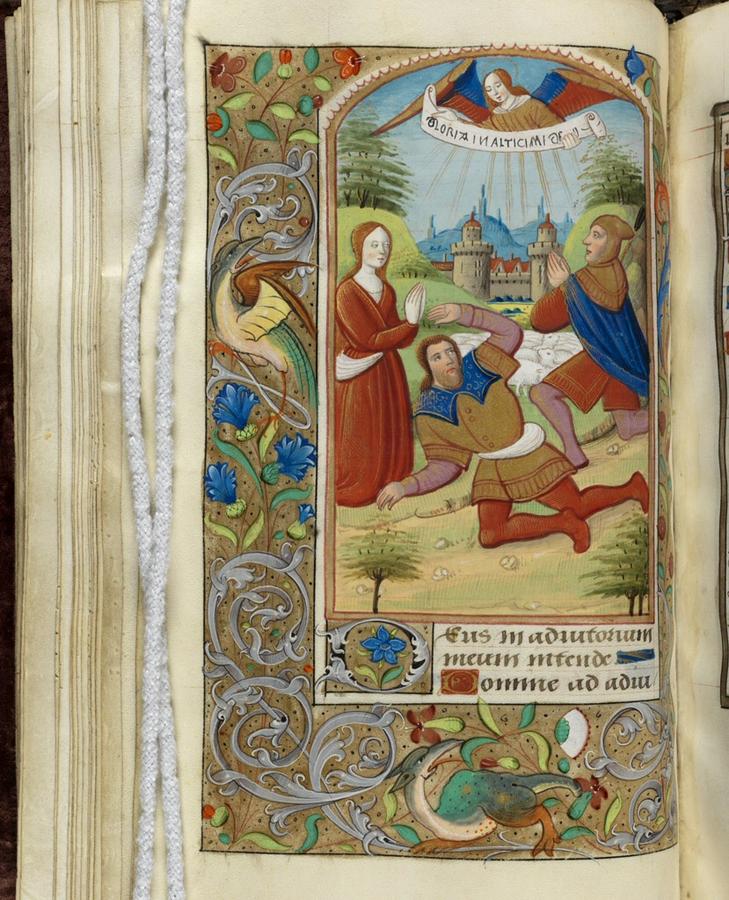 GLORIA IN ALTICIMI DE
Eus in adiutorium
meum intende
Domine ad adiu